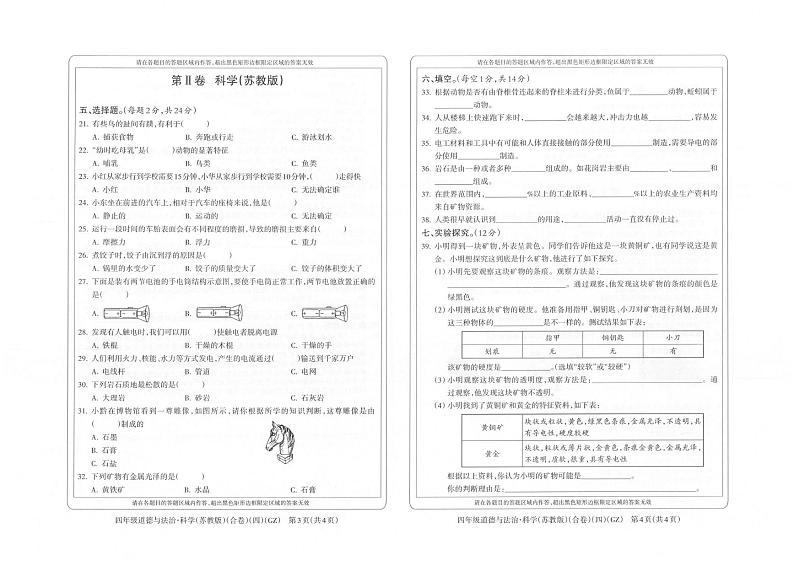 请在各题目的答题区域内作答,超出黑色矩形边框限定区域的答案无效
第Ⅱ卷 科学(苏教版)
五、选择题。(每题2分,共24分)
21. 有些鸟的趾间有蹼,有利于( )
A. 捕获食物 B. 奔跑或行走 C. 游泳划水
22. “幼时吃母乳”是( )动物的显著特征
A. 哺乳 B. 鸟类 C. 鱼类
23. 小红从家步行到学校需要15分钟,小华从家步行到学校需要10分钟,( )走得快
A. 小红 B. 小华 C. 无法确定谁
24. 小东坐在前进的汽车上,相对于汽车的座椅来说,他是( )
A. 静止的 B. 运动的 C. 无法确定
25. 运行一段时间的车胎表面会有不同程度的磨损,导致的磨损主要来自( )
A. 摩擦力 B. 浮力 C. 重力
26. 煮饺子时,饺子由沉到浮的原因是( )
A. 锅里的水变少了 B. 饺子的质量变大了 C. 饺子的体积变大了
27. 下面是装有两节电池的手电筒结构示意图,要使手电筒正常工作,两节电池放置正确的
是( )
A. B. C.
28. 发现有人触电时,我们可以用( )使触电者脱离电源
A. 铁棍 B. 干燥的木棍 C. 干燥的手
29. 人们利用火力、核能、水力等方式发电,产生的电流通过( )输送到千家万户
A. 电线杆 B. 管道 C. 电网
30. 下列岩石质地最松散的是( )
A. 大理岩 B. 砂岩 C. 石灰岩
31. 小黔在博物馆看到一尊雕像,如图所示,请你根据所学的知识判断,这尊雕像是由
( )制成的
A. 石墨
B. 石膏
C. 石盐
32. 下列矿物有金属光泽的是( )
A. 黄铁矿 B. 水晶 C. 石膏
请在各题目的答题区域内作答,超出黑色矩形边框限定区域的答案无效
四年级道德与法治·科学(苏教版)(合卷)(四)(GZ) 第3页(共4页)
请在各题目的答题区域内作答,超出黑色矩形边框限定区域的答案无效
六、填空。(每空1分,共14分)
33. 根据动物是否有由脊椎骨连起来的脊柱来进行分类,鱼属于________动物,蚯蚓属于
________动物。
34. 人从楼梯上快速跑下来时,________会越来越大,冲击力也越________,容易发
生危险。
35. 电工材料和工具中有可能和人体直接接触的部分使用________制造,需要导电的部
分使用________制造。
36. 岩石是由一种或者多种________组成的。如花岗岩主要由________、________和
________组成。
37. 在世界范围内,________%以上的工业原料、________%以上的农业生产资料均
来自矿物资源。
38. 人类很早就认识到________的用途,________活动一直没有停止过。
七、实验探究。(12分)
39. 小明得到一块矿物,外表呈黄色。同学们告诉他这是一块黄铜矿,也有同学说这是黄
金。小明想探究这到底是什么矿物,他进行了如下探究。
(1) 小明先要观察这块矿物的条痕。观察方法是:________
________。通过观察,他发现这块矿物的条痕的颜色是
绿黑色。
(2) 小明测试这块矿物的硬度。他准备用指甲、铜钥匙、小刀对矿物进行刻划,是因为
这三种物体的________是不一样的。测试结果如下表:
指甲 铜钥匙 小刀
划痕 无 无 有
该矿物的硬度是________。(选填“较软”或“较硬”)
(3) 小明观察这块矿物的透明度,观察方法是:________。通
过观察,他发现这块矿物不透明。
(4) 小明找到了黄铜矿和黄金的特征资料,如下表:
黄铜矿 块状或粒状,黄色,绿黑色条痕,金属光泽,不透明,具
有导电性,硬度较硬
黄金 块状,粒状或薄片状,金黄色,条痕金黄色,金属光泽,
不透明,质软,很重,具有导电性
根据以上资料,你认为小明的矿物可能是________。
你的判断理由是:________
请在各题目的答题区域内作答,超出黑色矩形边框限定区域的答案无效
四年级道德与法治·科学(苏教版)(合卷)(四)(GZ) 第4页(共4页)